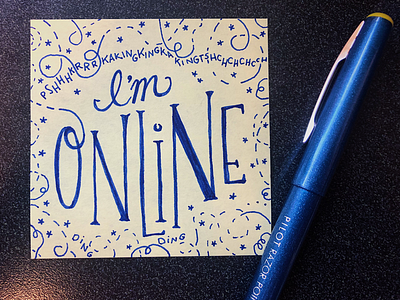 PSHHHKKRRRKAKINGKINGKAKINGTSHCHCHCCH
I'm
ONLiNE
DiNG
DiNG
PILOT RAZOR POI